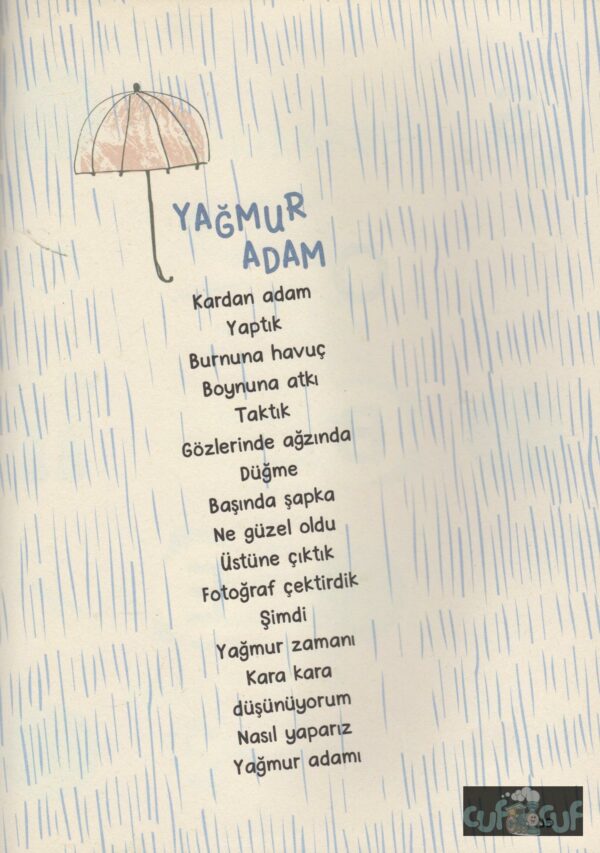 YAĞMUR
ADAM
Kardan adam
Yaptık
Burnuna havuç
Boynuna atkı
Taktık
Gözlerinde ağzında
Düğme
Başında şapka
Ne güzel oldu
Üstüne çıktık
Fotoğraf çektirdik
Şimdi
Yağmur zamanı
Kara kara
düşünüyorum
Nasıl yaparız
Yağmur adamı
cuf cuf